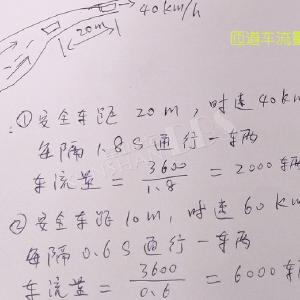 40km/h
匝道车流量
20m
① 安全车距 20m,时速40k
每隔1.8S通行一车两
车流量 = 3600/1.8 = 2000车
② 安全车距10m,时速60k
每隔0.6S通行一车两
车流量 = 3600/0.6 = 6000车